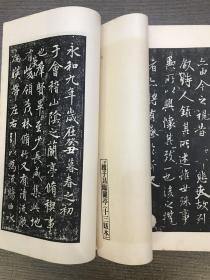 亦由今之視昔 悲夫故列
敘時人錄其所述雖世殊事
異所以興懷其致一也後之攬
趙子昂臨蘭亭十三跋本
永和九年歲在癸丑暮春之初
于會稽山陰之蘭亭脩稧事
也群賢畢至少長咸集此地
峻領茂林脩竹又有清流激
湍暎帶左右